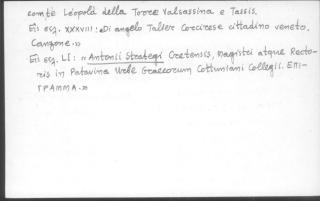 comte Léopold della Torre Valsassina e Tassis.
Εἰς σελ. XXXVIII: «Di Angelo Talier Corcirese cittadino veneto.
Canzone.»
Εἰς σελ. LI: «Antonii Strategi Cretensis, magistri atque Recto-
ris in Patavina Urbe Graecorum Cottuniani Collegii. Ἐπί-
γραμμα.»